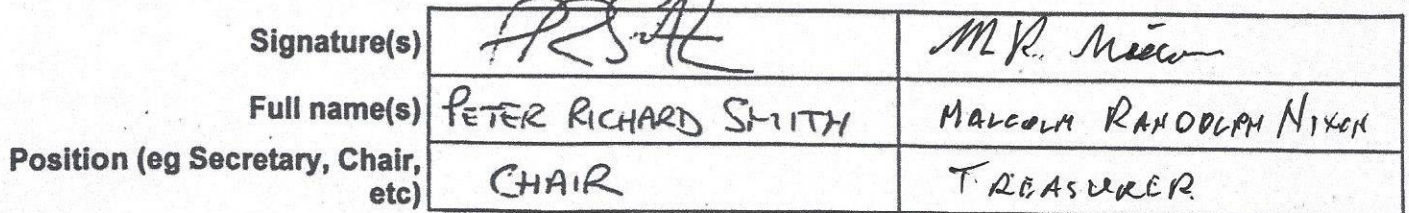 Signature(s) PRSmith M R. Nixon
Full name(s) PETER RICHARD SMITH MALCOLM RANDOLPH NIXON
Position (eg Secretary, Chair,
etc) CHAIR TREASURER